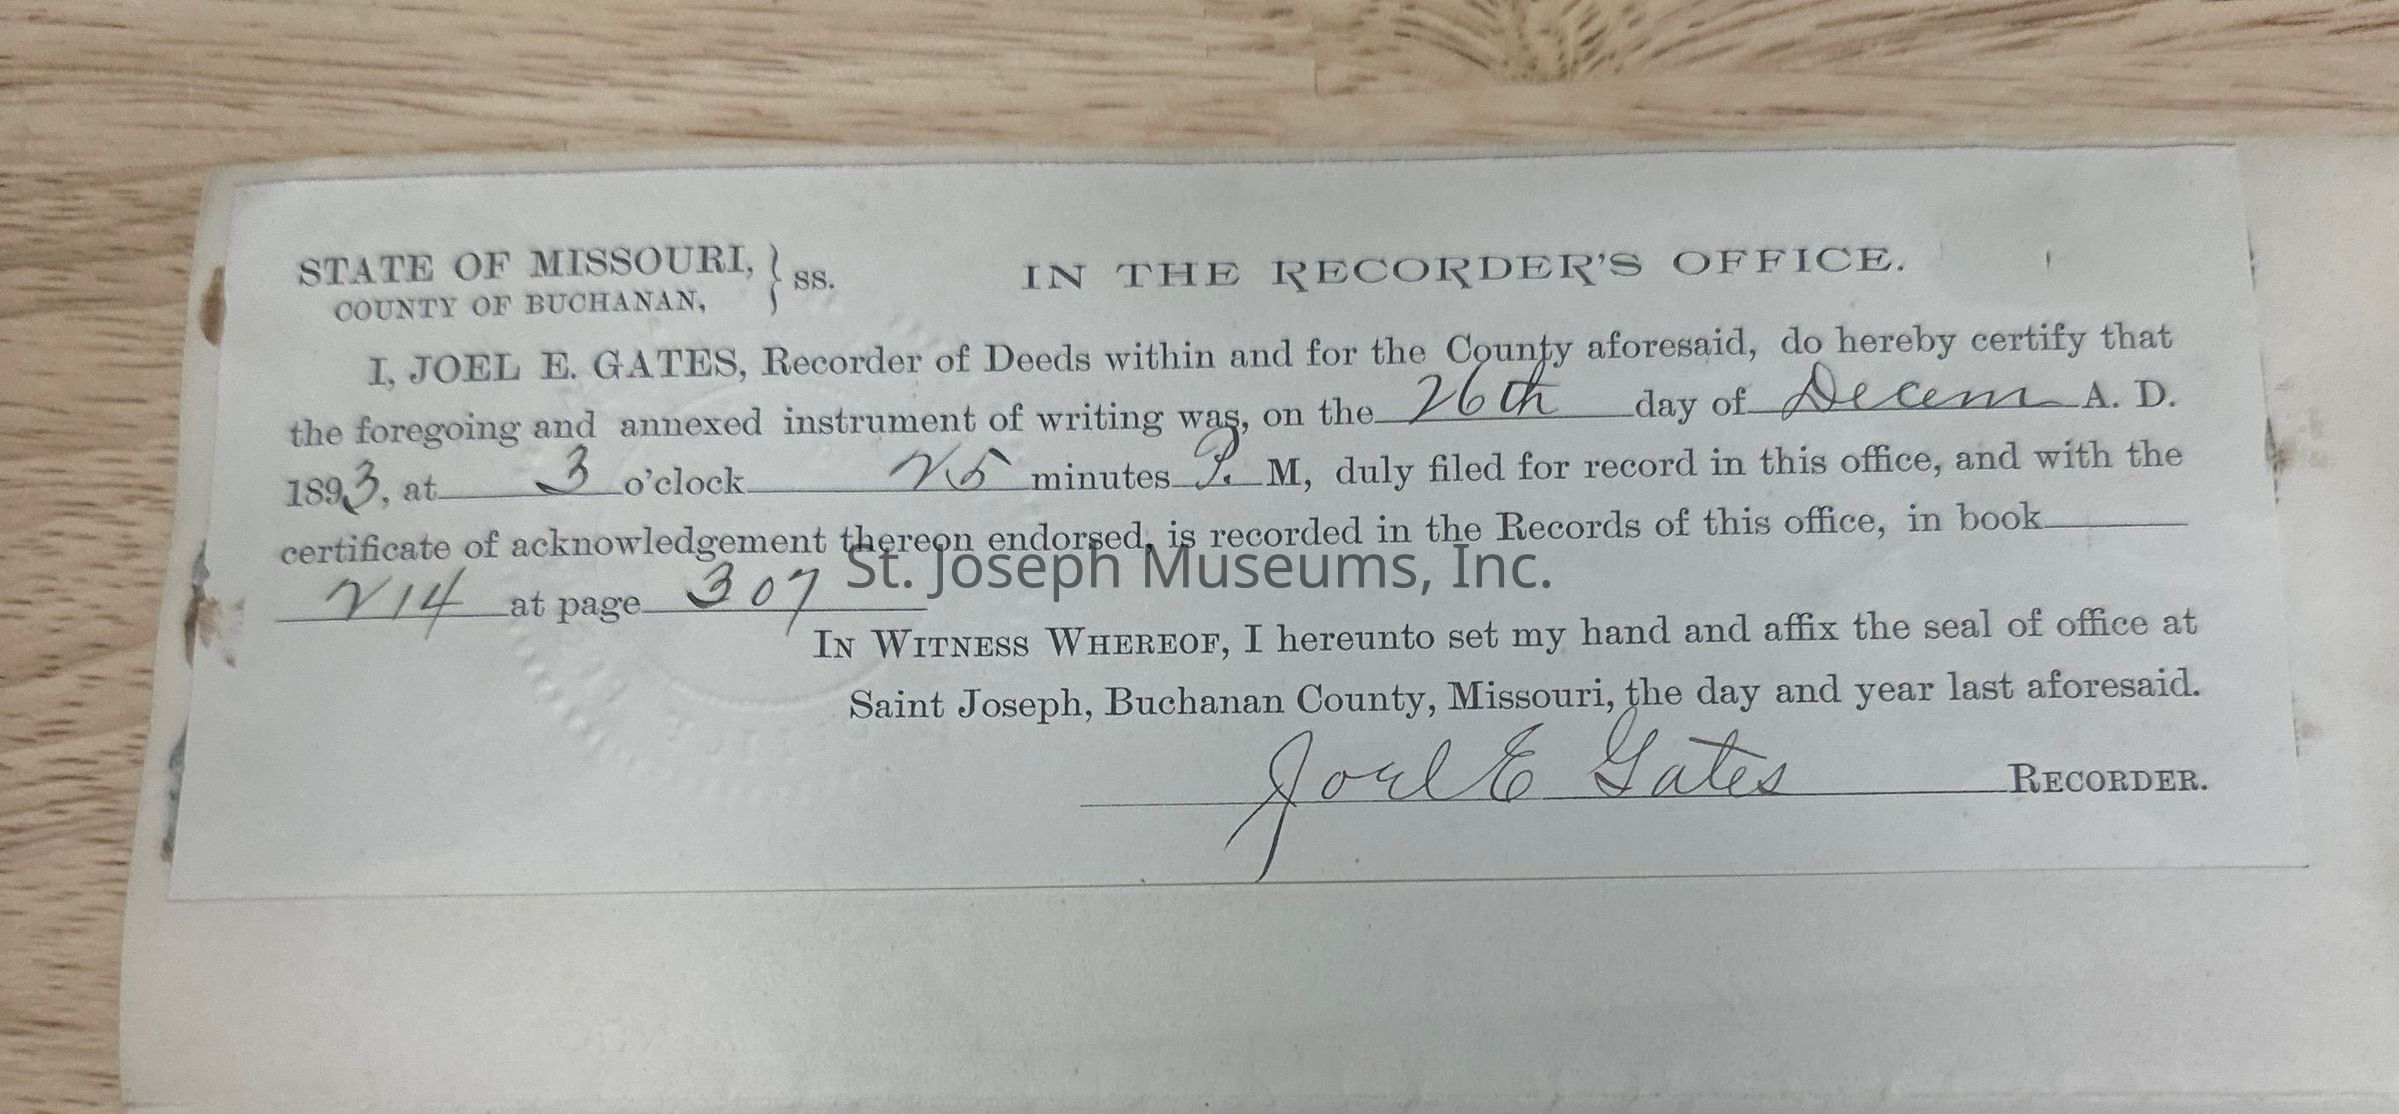 STATE OF MISSOURI, } ss. IN THE RECORDER'S OFFICE.
COUNTY OF BUCHANAN,
I, JOEL E. GATES, Recorder of Deeds within and for the County aforesaid, do hereby certify that
the foregoing and annexed instrument of writing was, on the 26th day of Decem A. D.
1893, at 3 o'clock 25 minutes P. M, duly filed for record in this office, and with the
certificate of acknowledgement thereon endorsed, is recorded in the Records of this office, in book
214 at page 307
St. Joseph Museums, Inc.
IN WITNESS WHEREOF, I hereunto set my hand and affix the seal of office at
Saint Joseph, Buchanan County, Missouri, the day and year last aforesaid.
Joel E Gates RECORDER.